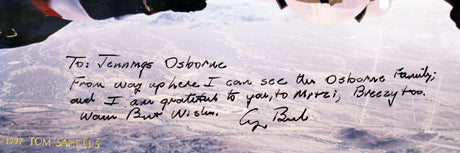 To: Jennings Osborne
From way up here I can see the Osborne Family;
and I am grateful to you, to Mitzi, Breezy too.
Warm Best Wishes.
©1997 TOM SANDERS